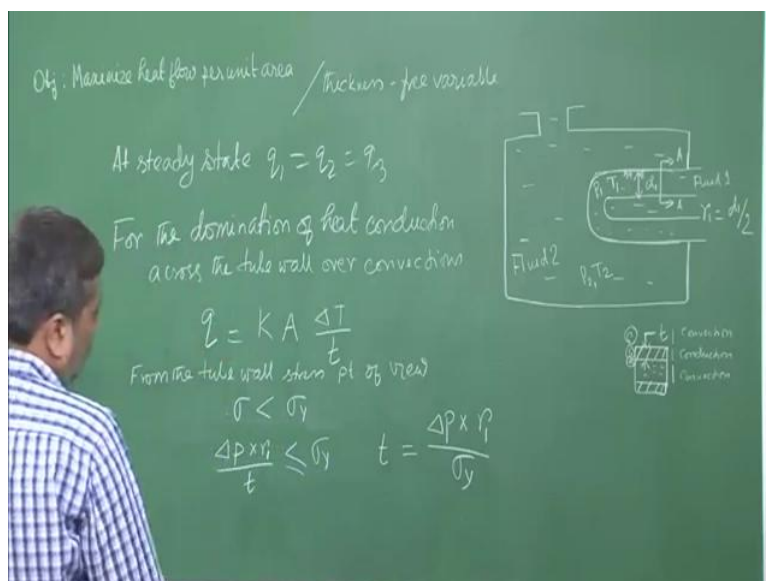 Obj: Maximize heat flow per unit area / Thickness - free variable
At steady state q₁ = q₂ = q₃
For the domination of heat conduction
across the tube wall over convections
q = K A ΔT/t
From the tube wall stress pt of view
σ < σy
Δp × r₁/t ≤ σy   t = Δp × r₁/σy
A
P₁ T₁ d₁ Fluid 1
A
r₁ = d₁/2
Fluid 2
P₂, T₂
① t Convection
② Conduction
Convection